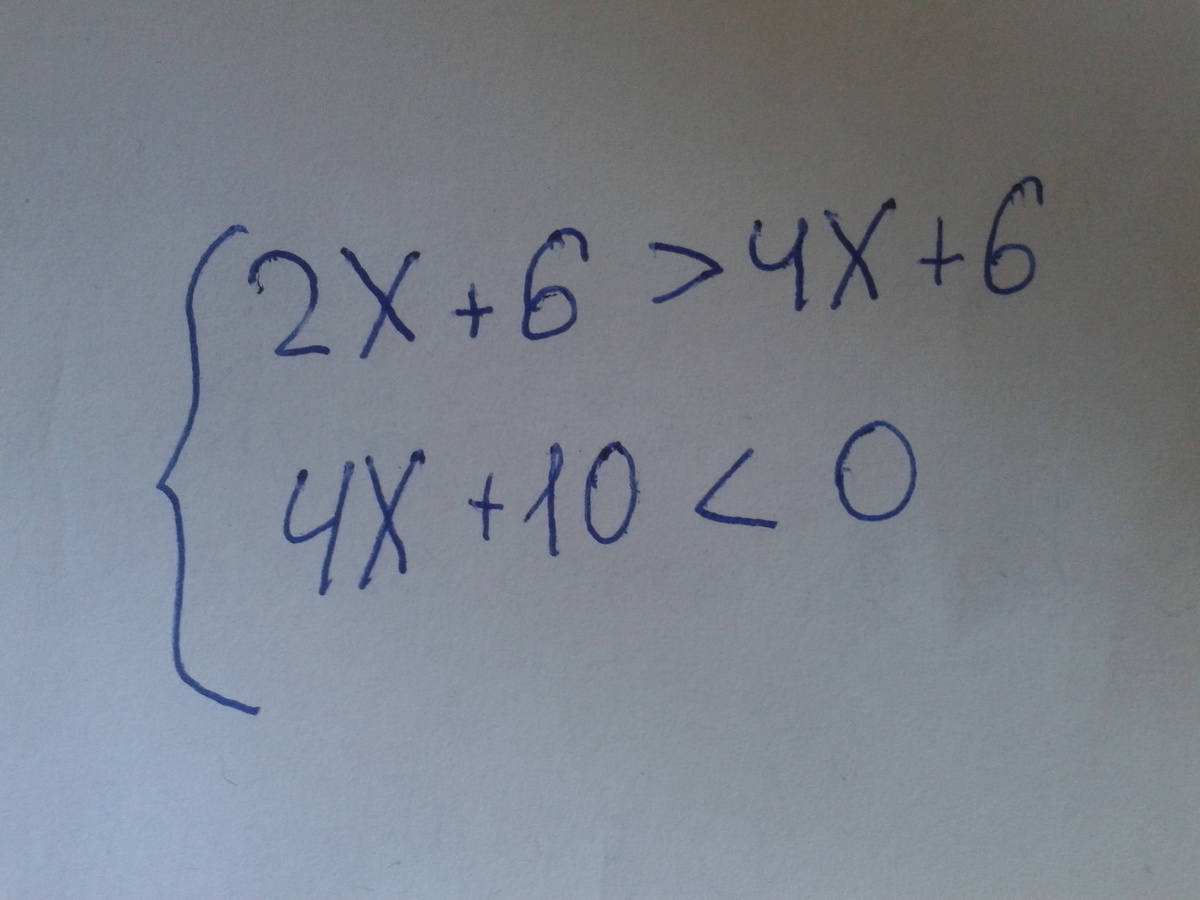 2x + 6 > 4x + 6
4x + 10 < 0